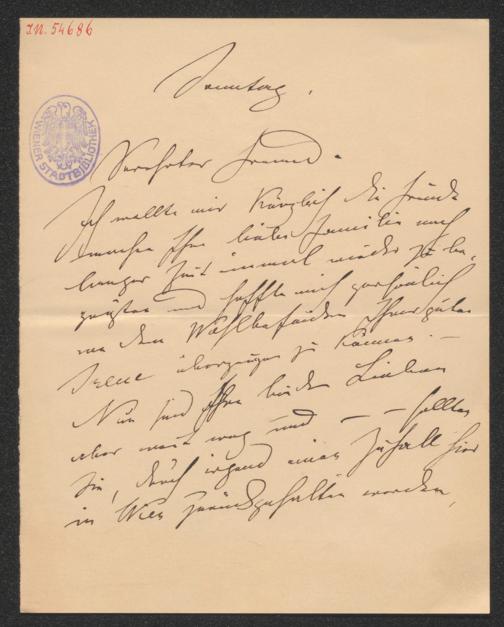 I.N. 54686
Sonntag.
WIENER STADTBIBLIOTHEK
Verehrter Freund.
Ich wollte mir kürzlich die Freude
machen Ihre liebe Familie nach
langer Zeit einmal wieder zu be-
grüßen und hoffte mich persönlich
von dem Wohlbefinden Ihrer guten
Irene überzeugen zu können. —
Nun sind Ihre beiden Lieben
aber weit weg und — — sollten
Sie, durch irgend einen Zufall hier
in Wien zurückgehalten werden,